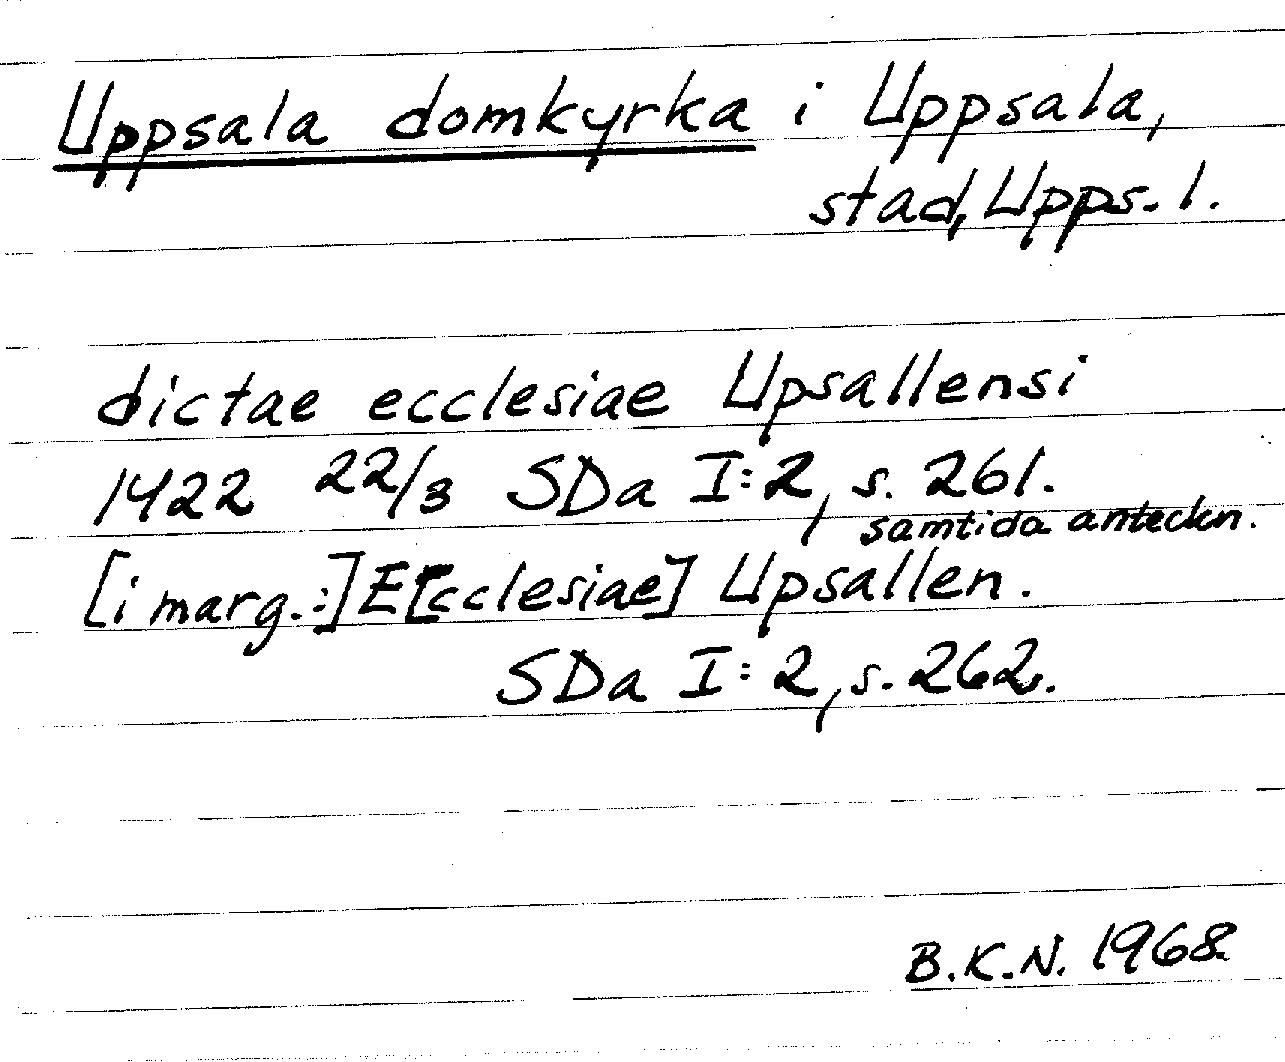 Uppsala domkyrka i Uppsala,
stad, Upps. l.
dictae ecclesiae Upsallensi
1422 22/3 SDa I:2, s. 261.
samtida anteckn.
[i marg.:] E[cclesiae] Upsallen.
SDa I:2, s. 262.
B.K.N. 1968